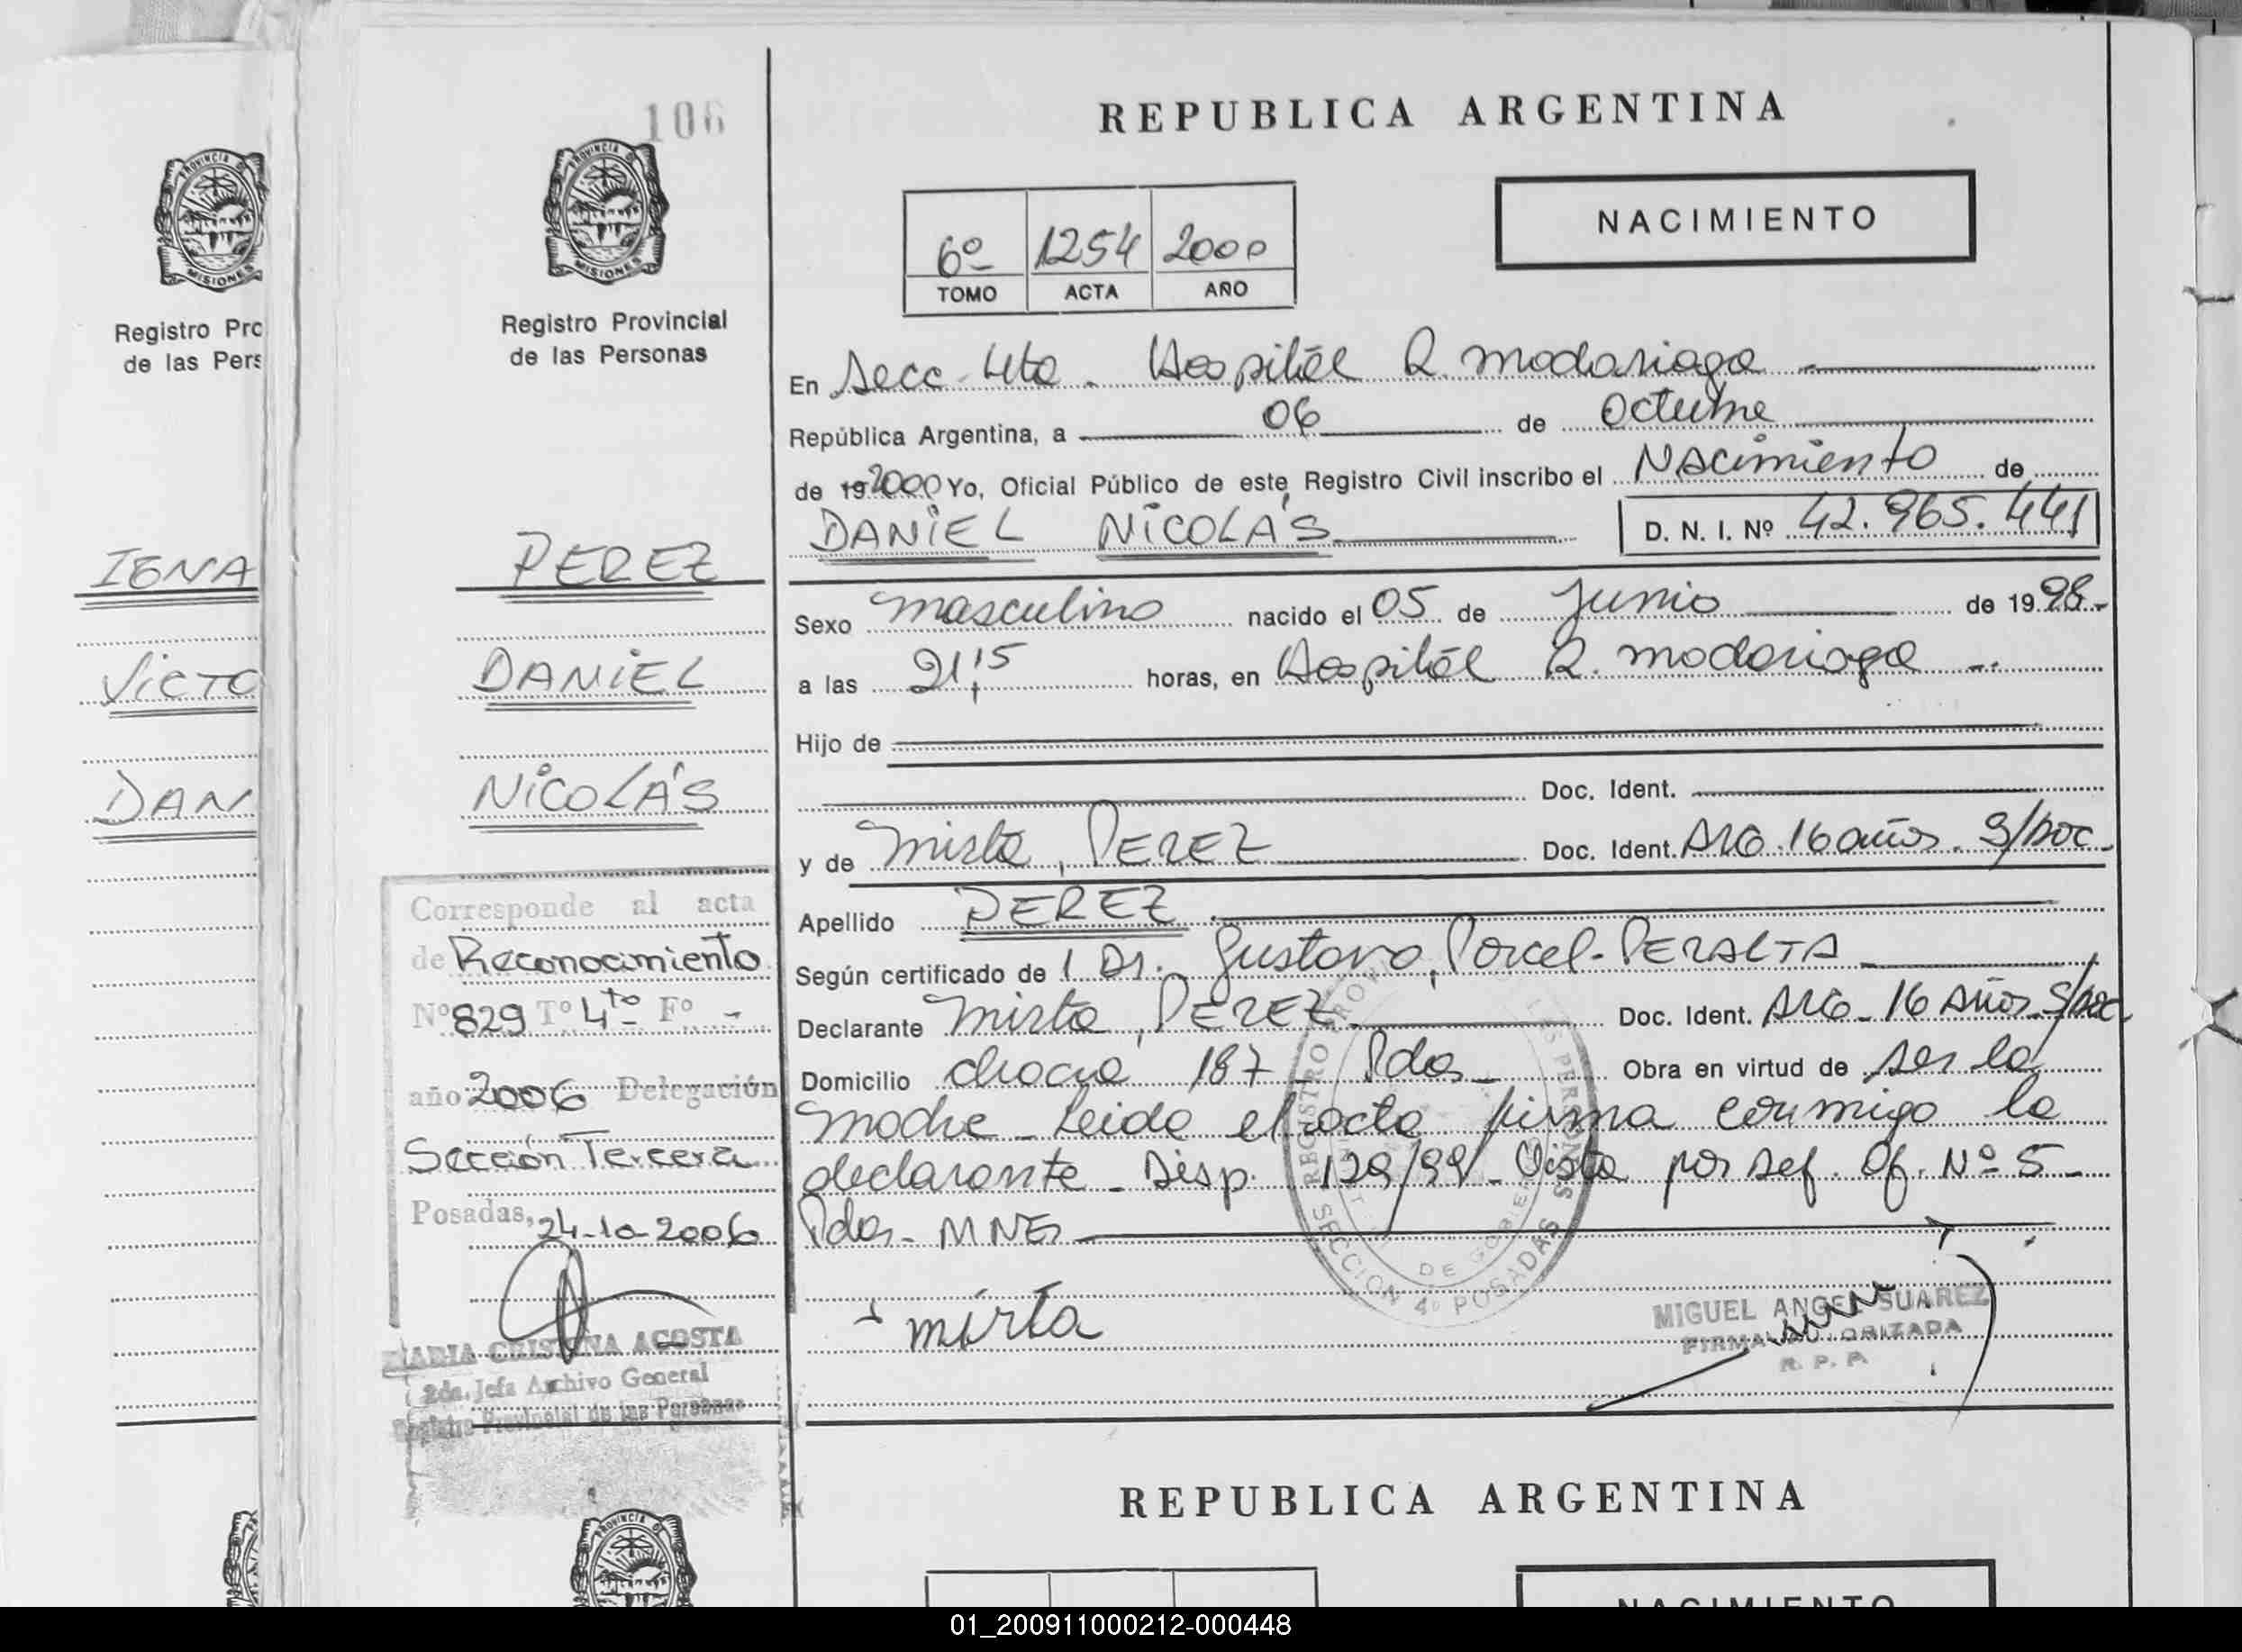 106
REPUBLICA ARGENTINA
PROVINCIA DE
MISIONES
Registro Pro
de las Pers
IGNA
VICTO
DAN
PROVINCIA DE
MISIONES
Registro Provincial
de las Personas
6º 1254 2000
TOMO ACTA AÑO
NACIMIENTO
En Secc. 4ta. Hospital R. Madariaga
República Argentina, a 06 de Octubre
de 19 2000 Yo, Oficial Público de este Registro Civil inscribo el Nacimiento de
DANIEL NICOLÁS D. N. I. Nº 42.965.441
PEREZ
DANIEL
NICOLÁS
Sexo masculino nacido el 05 de Junio de 1998.
a las 21,15 horas, en Hospital R. Madariaga
Hijo de
Doc. Ident.
y de Mirta, PEREZ Doc. Ident. ARG. 16 años. S/DOC.
Apellido PEREZ
Según certificado de 1 Dr. Gustavo, Porcel-PERALTA
Declarante Mirta, PEREZ Doc. Ident. ARG. 16 Años. S/DOC.
Domicilio 187 - Pdas - Obra en virtud de ser la
madre - Leida el acta firma conmigo la
declarante - Disp. 129/99 - Vista por Def. Of. Nº 5 -
Pdas - MNES
mirta
Corresponde al acta
de Reconocimiento
Nº 829 Tº 4to Fº -
año 2006 Delegación
Sección Tercera
Posadas, 24-10-2006
MARIA CRISTINA ACOSTA
2da. Jefa Archivo General
Registro Provincial de las Personas
REGISTRO PROV LAS PERSONAS
DE GOBIERNO
SECCION 4º POSADAS
MIGUEL ANGEL SUAREZ
FIRMA AUTORIZADA
R. P. P.
PROVINCIA DE
REPUBLICA ARGENTINA
NACIMIENTO
01_200911000212-000448